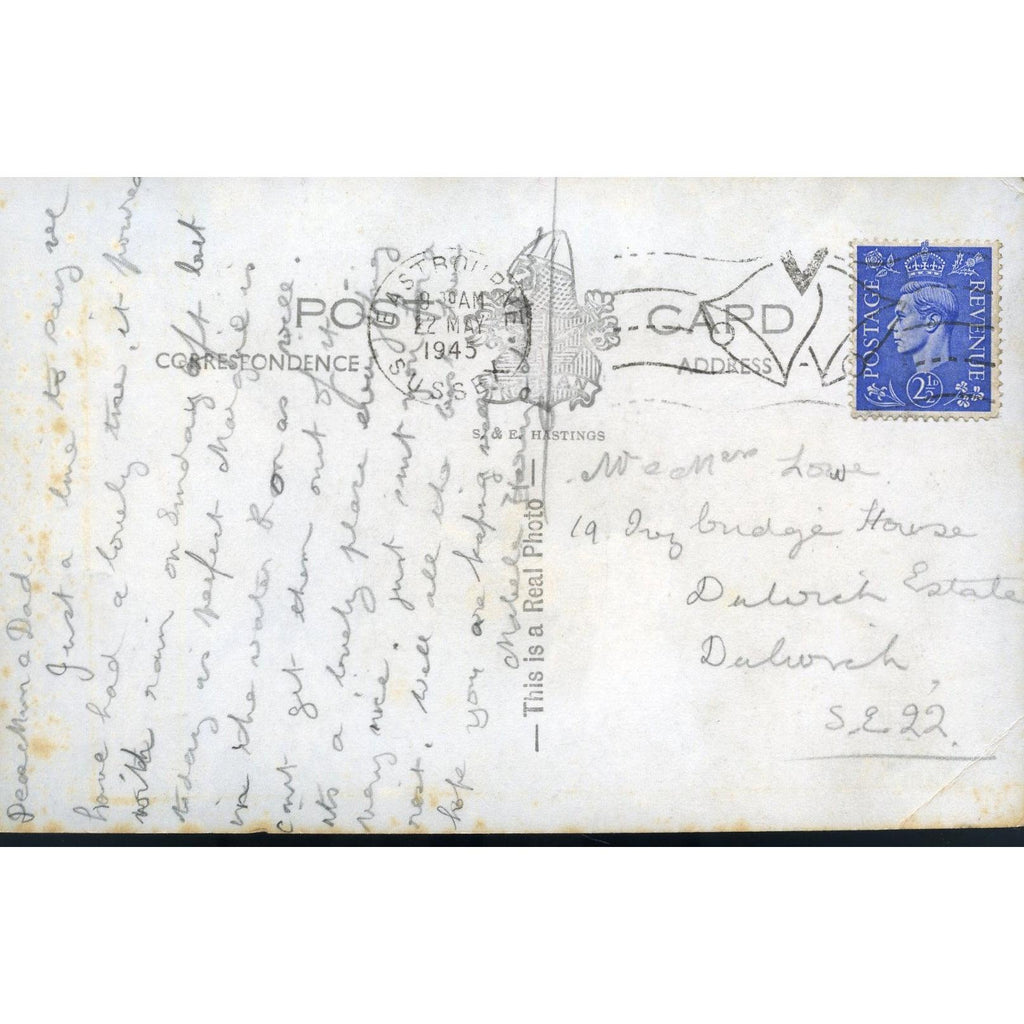 POST CARD
CORRESPONDENCE
ADDRESS
S. & E. HASTINGS
— This is a Real Photo —
EASTBOURNE
8 30 AM
22 MAY
1945
SUSSEX
POSTAGE
REVENUE
2½D
Mr & Mrs Lowe
19. Ivy bridge House
Dulwich Estate
Dulwich,
S.E 22.
Dear Mum & Dad.
Just a line to say we
have had a lovely time, it poured
with rain on Sunday aft but
today is perfect Margie is
in the water R on as well.
Cant get them out of it
its a lovely place
very nice. just
rest. Well all the
hope you are keeping
Mabel